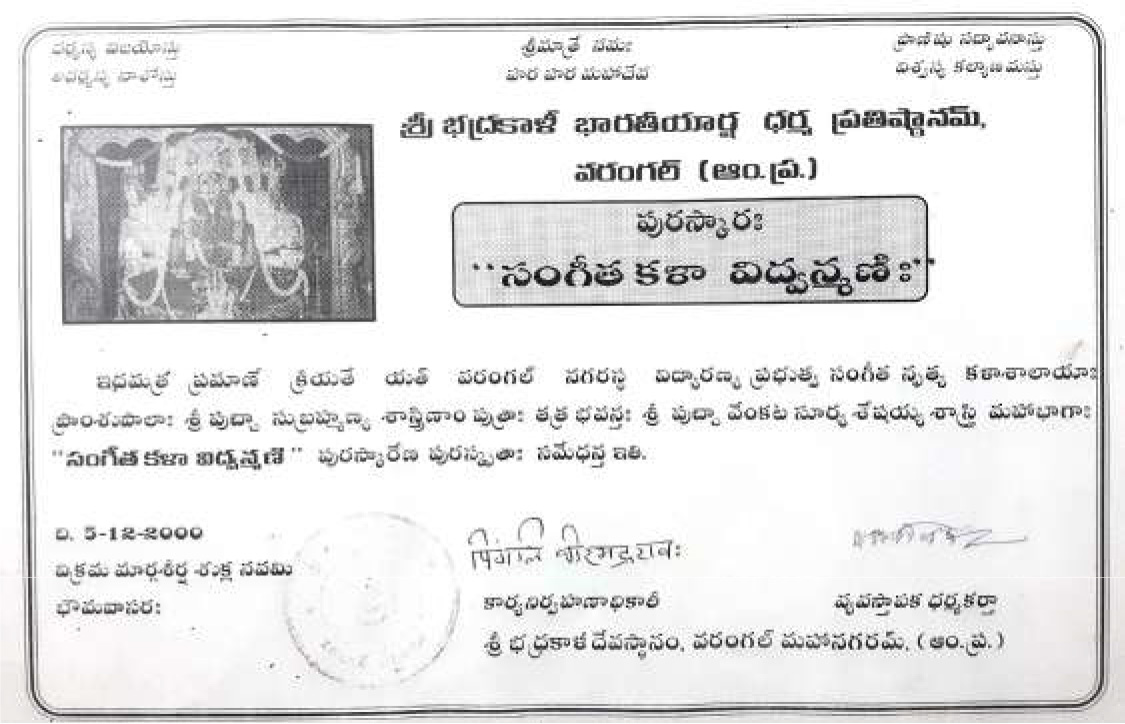 ధర్మస్య విజయోస్తు
అధర్మస్య నాశోస్తు
శ్రీమాత్రే నమః
హర హర మహాదేవ
ప్రాణిషు సద్భావనాస్తు
విశ్వస్య కల్యాణమస్తు
శ్రీ భద్రకాళీ భారతీయార్ష ధర్మ ప్రతిష్ఠానమ్,
వరంగల్ (ఆం.ప్ర.)
పురస్కారః
"సంగీత కళా విద్వన్మణిః"
ఇదమత్ర ప్రమాణీ క్రియతే యత్ వరంగల్ నగరస్థ విద్యారణ్య ప్రభుత్వ సంగీత నృత్య కళాశాలాయాః
ప్రాంశుపాలాః శ్రీ పుచ్చా సుబ్రహ్మణ్య శాస్త్రిణాం పుత్రాః తత్ర భవన్తః శ్రీ పుచ్చా వేంకట సూర్య శేషయ్య శాస్త్రి మహాభాగాః
"సంగీత కళా విద్వన్మణి" పురస్కారేణ పురస్కృతాః సమేధన్త ఇతి.
ది. 5-12-2000
విక్రమ మార్గశీర్ష శుక్ల నవమి
భౌమవాసరః
కార్యనిర్వహణాధికారీ
వ్యవస్థాపక ధర్మకర్తా
శ్రీ భద్రకాళీ దేవస్థానం, వరంగల్ మహానగరమ్, (ఆం.ప్ర.)